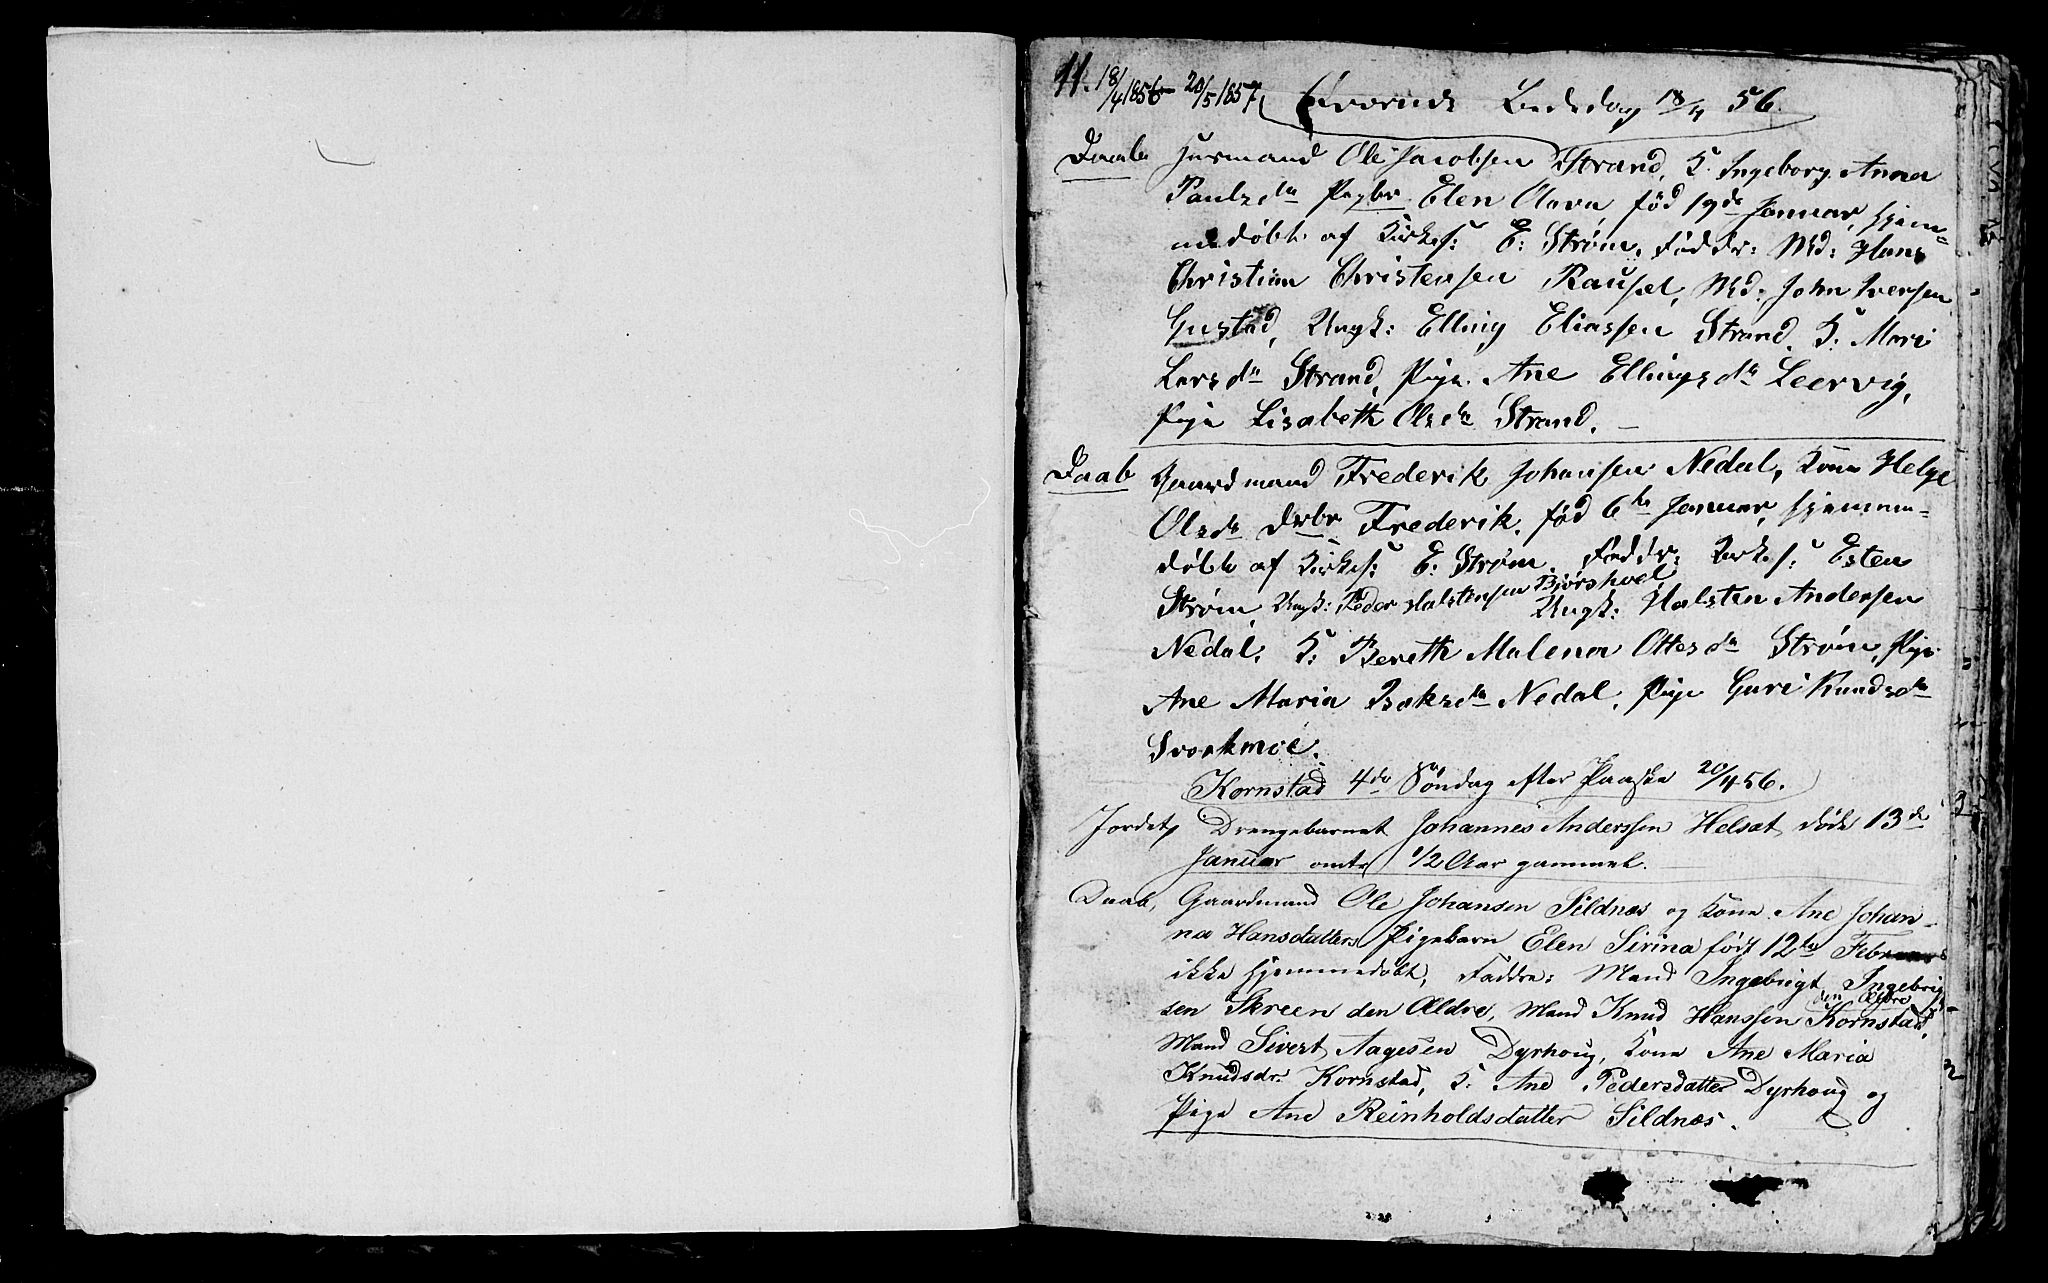 11. 18/4 1856 – 20/5 1857. Qvernæs Bededag 18/4 56.
Daab Husmand Ole Jacobsen Strand, K. Ingeborg Anna
Paulsdr Pigbr Elen Olava fød 19de Januar, hjem=
medøbt af Kirkes: E: Strøm, Faddr: Md: Hans
Christian Christensen Røusæt, Md: John Iversen
Gustad, Ungk: Elling Eliassen Strand. K: Mari
Larsdr Strand, Pige Ane Ellingsdr Leervig,
Pige Lisabeth Olsdr Strand. –
Daab Gaardmand Frederik Johansen Nedal, Kone Helge
Olsdr Drbr Frederik, fød 6te Januar, hjemme=
døbt af Kirkes: E: Strøm. Faddr: Kirkes: Esten
Strøm, Ungk: Peder Halstensen Bjørshoel Ungk: Halsten Andersen
Nedal, K: Bereth Malena Ottesdr Strøm, Pige
Ane Maria Isaksdr Nedal, Pige Guri Knudsdr
Svorkmoe.
Kornstad 4de Søndag efter Paaske 20/4 56.
Jordet, Drengebarnet Johannes Anderssen Helsæt døde 13de
Januar omtr 1/2 Aar gammel. –
Daab, Gaardmand Ole Johansen Sildnæs og Kone Ane Johan-
na Hansdatters Pigebarn Elen Sirina født 12te Februar
ikke hjemmedøbt, Faddre: Mand Ingebrigt Ingebrigt-
sen Skreen den Ældre, Mand Knud Hanssen Kornstad den Ældre,
Mand Sivert Aagesen Dyrhoug, Kone Ane Maria
Knudsdr. Kornstad, K. Ane Pedersdatter Dyrhoug og
Pige Ane Reinholdsdatter Sildnæs.